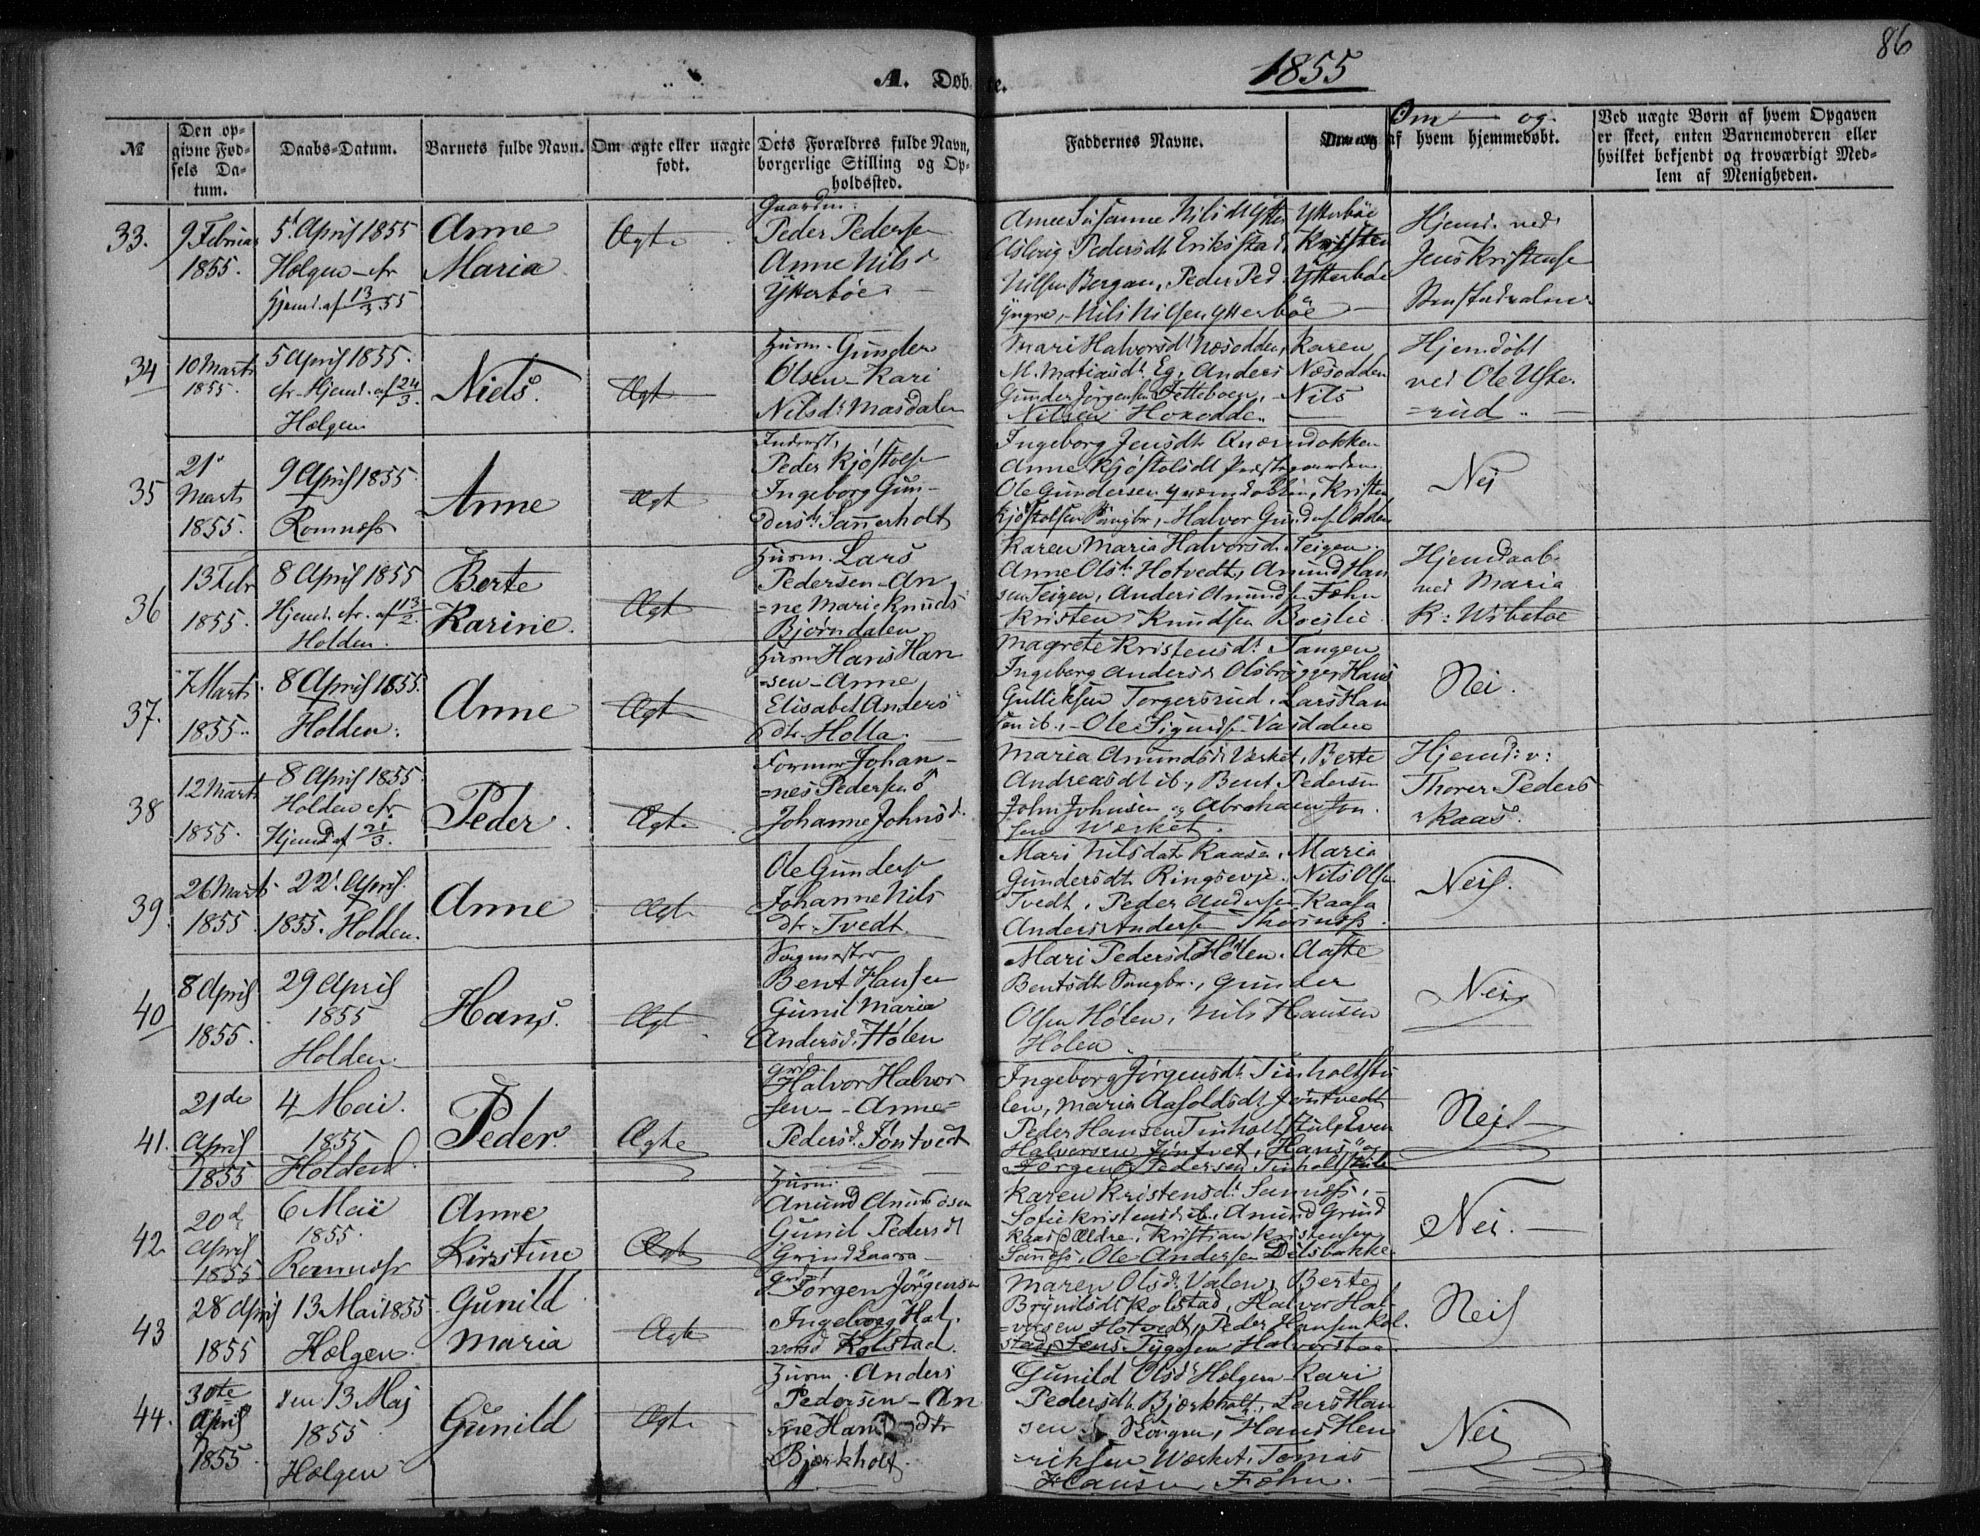 86
A. Døbte.
1855
No
Den op-
givne Fød-
sels Da-
tum.
Daabs-Datum.
Barnets fulde Navn.
Om ægte eller uægte
født.
Dets Forældres fulde Navn,
borgerlige Stilling og Op-
holdssted.
Faddernes Navne.
Om og
af hvem hjemmedøbt.
Ved uægte Børn af hvem Opgaven
er skeet, enten Barnemoderen eller
hvilket bekjendt og troværdigt Med-
lem af Menigheden.
33.
9 Februar
1855.
5 April 1855
Hælgen - efr
Hjemd. af 13/2 55
Anne
Maria
Ægte
Gaardm:
Peder Peders
Anne Nilsd
Ytterbøe
Anne Susanne Nilsdt Ytterbøe
Asloug Pedersdt Erikstad, Kristen
Nilsen Bergan, Peder Ped. Ytterbøe
Yngre, - Nils Nilsen Ytterbøe
Hjemd. ved
Jens Kristens
34
10 Marts
1855.
5 April 1855.
efr. Hjemd. af 24/3.
Hælgen
Niels.
Ægte
Husm. Gunder
Olsen - Kari
Nilsd. Masdalen
Mari Halvorsdt Næsodden, Karen
Eg, Anders Næsodden
Gunder Jørgensen, Nils
Nilsen
Hjemdøbt
ved Ole Ufte-
=rud.
35
21
Marts
1855.
9 April 1855
Romnæs
Anne
Ægte
Inderst,
Peder Kjøstols
Ingeborg Gun-
dersdt. Sannerholt
Ingeborg Jensdt
Anne Kjøstolsdt Præstegaarden
Ole Gundersen, Kristen
Kjøstolsen, - Halvor Gunders Odden
Nei
36
13 Febr
1855.
8 April 1855
Hjemd. efr. af 13/2.
Holden.
Berte
Karine.
Ægte
Husm. Lars
Pedersen - An
=ne Marie Knuds
Bjørndalen
Karen Maria Halvorsd. Teigen.
Anne Olsdt. Hotvedt, Amund Han
sen Teigen, Anders Amunds Fæhn
Kristen Knudsen Boeslie
Hjemdaab
ved Maria
K: Wibetoe
37.
7 Marts
1855.
8 April 1855.
Holden.
Anne
Ægte
Husm Hans Han
=sen - Anne
Elisabet Anders
dtr. Holla.
Magrete Kristensdt. Tangen
Ingeborg Andersd Olsbrygge, Hans
Gulliksen Torgersrud. Lars Han
sen ib. - Ole Sigurds
Nei.
38
12 Marts
1855.
8 April 1855.
Holden efr.
Hjemd af 21/3.
Peder.
Ægte
Former Johan-
=nes Pedersen
Johanne Johnsd.
Maria Amundsd. Værket, Berte
Andreasdt ib., Bent Pedersen
John Johnsen og Abraham Jon
sen Værket.
Hjemd: v:
Thorer Peders
Kaas.
39
26 Marts
1855
22. April.
1855. Holden.
Anne
Ægte
Ole Gunders
Johanne Nils
dtr. Tvedt.
Mari Nilsdatr Kaasen, Maria
Gundersdt. Ringsevje. Nils Ols
Tvedt, Peder Anders Kaasa
Anders Anders
Nei.
40
8 April
1855.
29 April
1855
Holden.
Hans.
Ægte
Bent Hansen
Gunil Maria
Andersd. Hølen
Mari Pedersdt Hølen. Aaste
Bentsdt, Gunder
Olsen Hølen, Nils Hansen
Hølen.
Nei
41.
21de
April
1855
4 Mai.
1855
Holden
Peder.
Ægte
Halvor Halvor
=sen - - Anne
Pedersd. Jøntvedt
Ingeborg Jørgensdt. Tinholtstu
len, Maria Jøntvedt
Peder Hansen Tinholtstul, Even
Halvorsen Jøntvet, Hans og
Jørgen Pedersen Tinholtstul
Nei
42
20d
April
1855
6 Mai
1855.
Romnæs
Anne
Kirstine
Ægte
Husm:
Amund Amundsen
Gunil Pedersdt
Grindkaasa
Karen Kristensd.
Sofie Kristensdt ib., Amund Grind
kaas Ældre, Kristian Kristensen
Ole Andersen
Nei.
43
28 April
1855
13 Mai 1855
Hælgen.
Gunild
Maria
Ægte
Jørgen Jørgensen
Ingeborg Hal
vorsd Kolstad.
Maren Olsd. Valen, Berte
Bryndlsdt Kolstad, Halvor Hal-
=vorsen Hotvedt, Peder Hansen Kol.
stad, Jens Halvorsbaa
Nei
44.
30te
April
1855.
den 13 Maj
1855
Hælgen
Gunild
Ægte
Husm. Anders
Pedersen - An
=ne Hansdtr
Bjørkholt.
Gunild Olsdt Hælgen Kari
Pedersdt. Bjørkholt, Lars Han
sen, Hans Hen
=riksen Værket, Tomas
Hansen Fæhn.
Nei